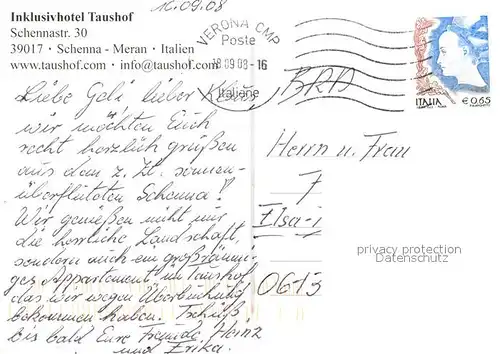 16.09.08
Inklusivhotel Taushof
Schennastr. 30
39017 · Schenna - Meran · Italien
www.taushof.com · info@taushof.com
VERONA CMP
Poste
18 09 08 - 16
Italiane
ITALIA € 0,65
Liebe Geli, lieber Klaus,
wir möchten Euch
recht herzlich grüßen
aus dem z. Zt. sonnen-
überfluteten Schenna!
Wir genießen nicht nur
die herrliche Landschaft,
sondern auch ein großräumi-
ges Appartement im Taushof,
das wir wegen Überbuchung
bekommen haben. Tschüß!
bis bald Eure Freunde Heinz
und Erika.
BRD
Herrn u. Frau
F
Elsa-
0613
privacy protection
Datenschutz